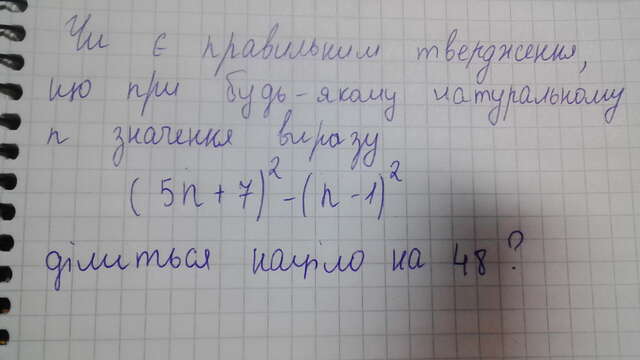 Чи є правильним твердження,
що при будь-якому натуральному
n значення виразу
(5n+7)²-(n-1)²
ділиться націло на 48?